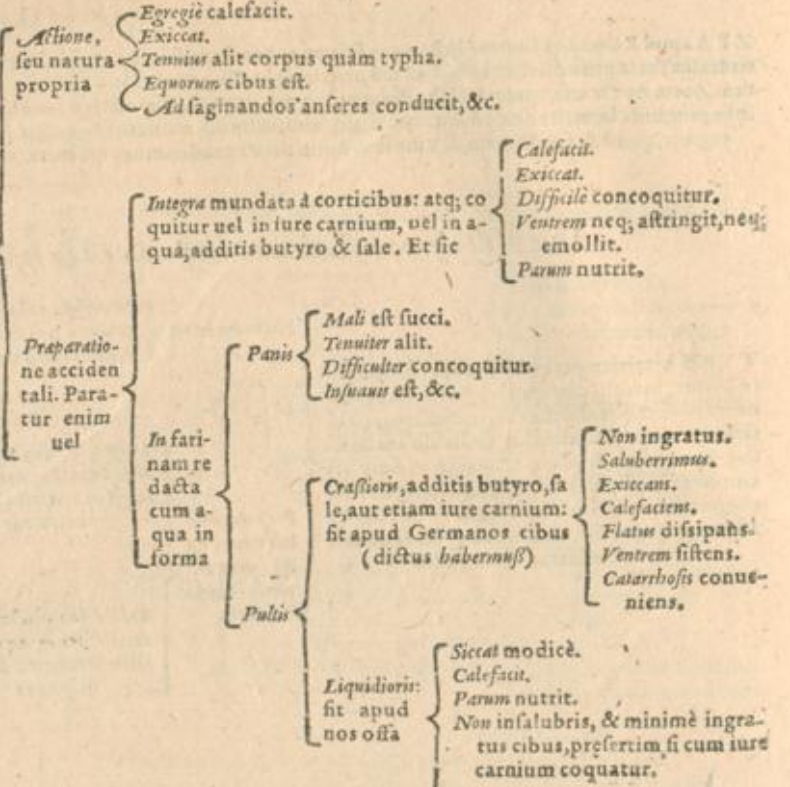 Actione,
seu natura
propria
Egregiè calefacit.
Exiccat.
Tenuius alit corpus quàm typha.
Equorum cibus est.
Ad saginandos anseres conducit, &c.
Præparatio-
ne acciden
tali. Para-
tur enim
uel
Integra mundata à corticibus: atq; co
quitur uel in iure carnium, uel in a-
qua, additis butyro & sale. Et sic
Calefacit.
Exiccat.
Difficilè concoquitur.
Ventrem neq; astringit, neq;
emollit.
Parum nutrit.
In fari-
nam re
dacta
cum a-
qua in
forma
Panis
Mali est succi.
Tenuiter alit.
Difficulter concoquitur.
Insuauis est, &c.
Pultis
Crassioris, additis butyro, sa
le, aut etiam iure carnium:
fit apud Germanos cibus
(dictus habermuß)
Non ingratus.
Saluberrimus.
Exiccans.
Calefaciens.
Flatus dissipans.
Ventrem sistens.
Catarrhosis conue-
niens.
Liquidioris:
fit apud
nos offa
Siccat modicè.
Calefacit.
Parum nutrit.
Non insalubris, & minimè ingra-
tus cibus, presertim si cum iure
carnium coquatur.